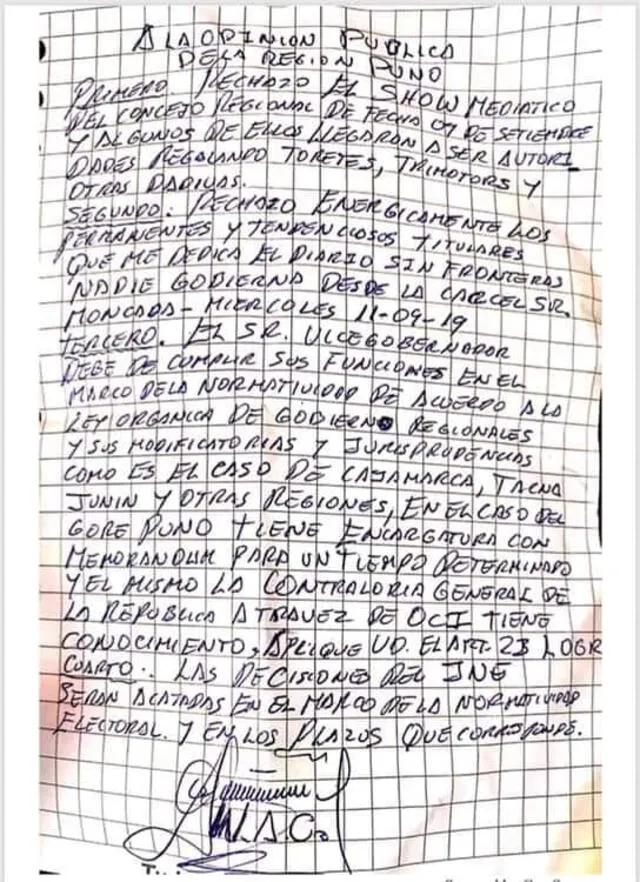 A LA OPINION PUBLICA
DE LA REGION PUNO
PRIMERO. RECHAZO EL SHOW MEDIATICO
DEL CONCEJO REGIONAL DE FECHA 07 DE SETIEMBRE
Y ALGUNOS DE ELLOS LLEGARON A SER AUTORI
DADES REGALANDO TORETES, TRIMOTORS Y
OTRAS DADIVAS.
SEGUNDO: RECHAZO ENERGICAMENTE LOS
PERMANENTES Y TENDENCIOSOS TITULARES
QUE ME DEDICA EL DIARIO SIN FRONTERAS
NADIE GOBIERNA DESDE LA CARCEL SR.
MONCADA - MIERCOLES 11-09-19
TERCERO. EL SR. VICEGOBERNADOR
DEBE DE CUMPLIR SUS FUNCIONES EN EL
MARCO DE LA NORMATIVIDAD DE ACUERDO A LA
LEY ORGANICA DE GOBIERNO REGIONALES
Y SUS MODIFICATORIAS Y JURISPRUDENCIAS
COMO ES EL CASO DE CAJAMARCA, TACNA
JUNIN Y OTRAS REGIONES, EN EL CASO DEL
GORE PUNO TIENE ENCARGATURA CON
MEMORANDUM PARA UN TIEMPO DETERMINADO
Y EL MISMO LA CONTRALORIA GENERAL DE
LA REPUBLICA A TRAVEZ DE OCI TIENE
CONOCIMIENTO, APLIQUE UD. EL ART. 23 LOGR
CUARTO.. LAS DECISIONES DEL JNE
SERAN ACATADAS EN EL MARCO DE LA NORMATIVIDAD
ELECTORAL. Y EN LOS PLAZOS QUE CORRESPONDE.
W.A.C.